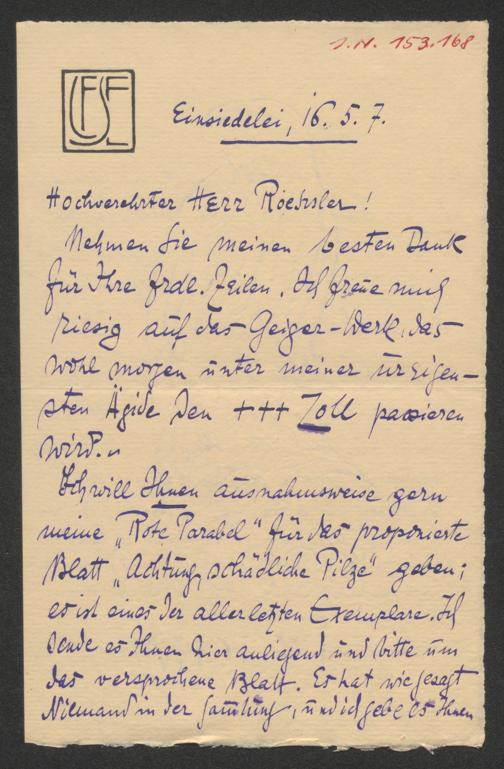 I.N. 153.168
Einsiedelei, 16. 5. 7.
Hochverehrter Herr Roessler!
Nehmen Sie meinen besten Dank
für Ihre frdl. Zeilen. Ich freue mich
riesig auf das Geiger-Werk, das
wohl morgen unter meiner ureigen-
sten Ägide den +++ Zoll passieren
wird.
Ich will Ihnen ausnahmsweise gern
meine „Rote Parabel" für das proponierte
Blatt „Achtung, schädliche Pilze" geben;
es ist eines der allerletzten Exemplare. Ich
sende es Ihnen hier anliegend und bitte um
das versprochene Blatt. Es hat wie gesagt
Niemand in der Samlung, und ich gebe es Ihnen